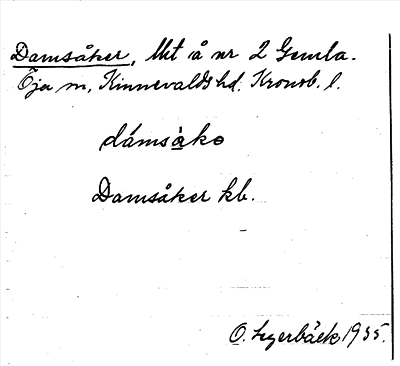 Damsåker, lht å nr 2 Gemla.
Öja sn, Kinnevalds hd. Kronob. l.
dámsàkə
Damsåker kb.
O. Lyerbäck 1935.